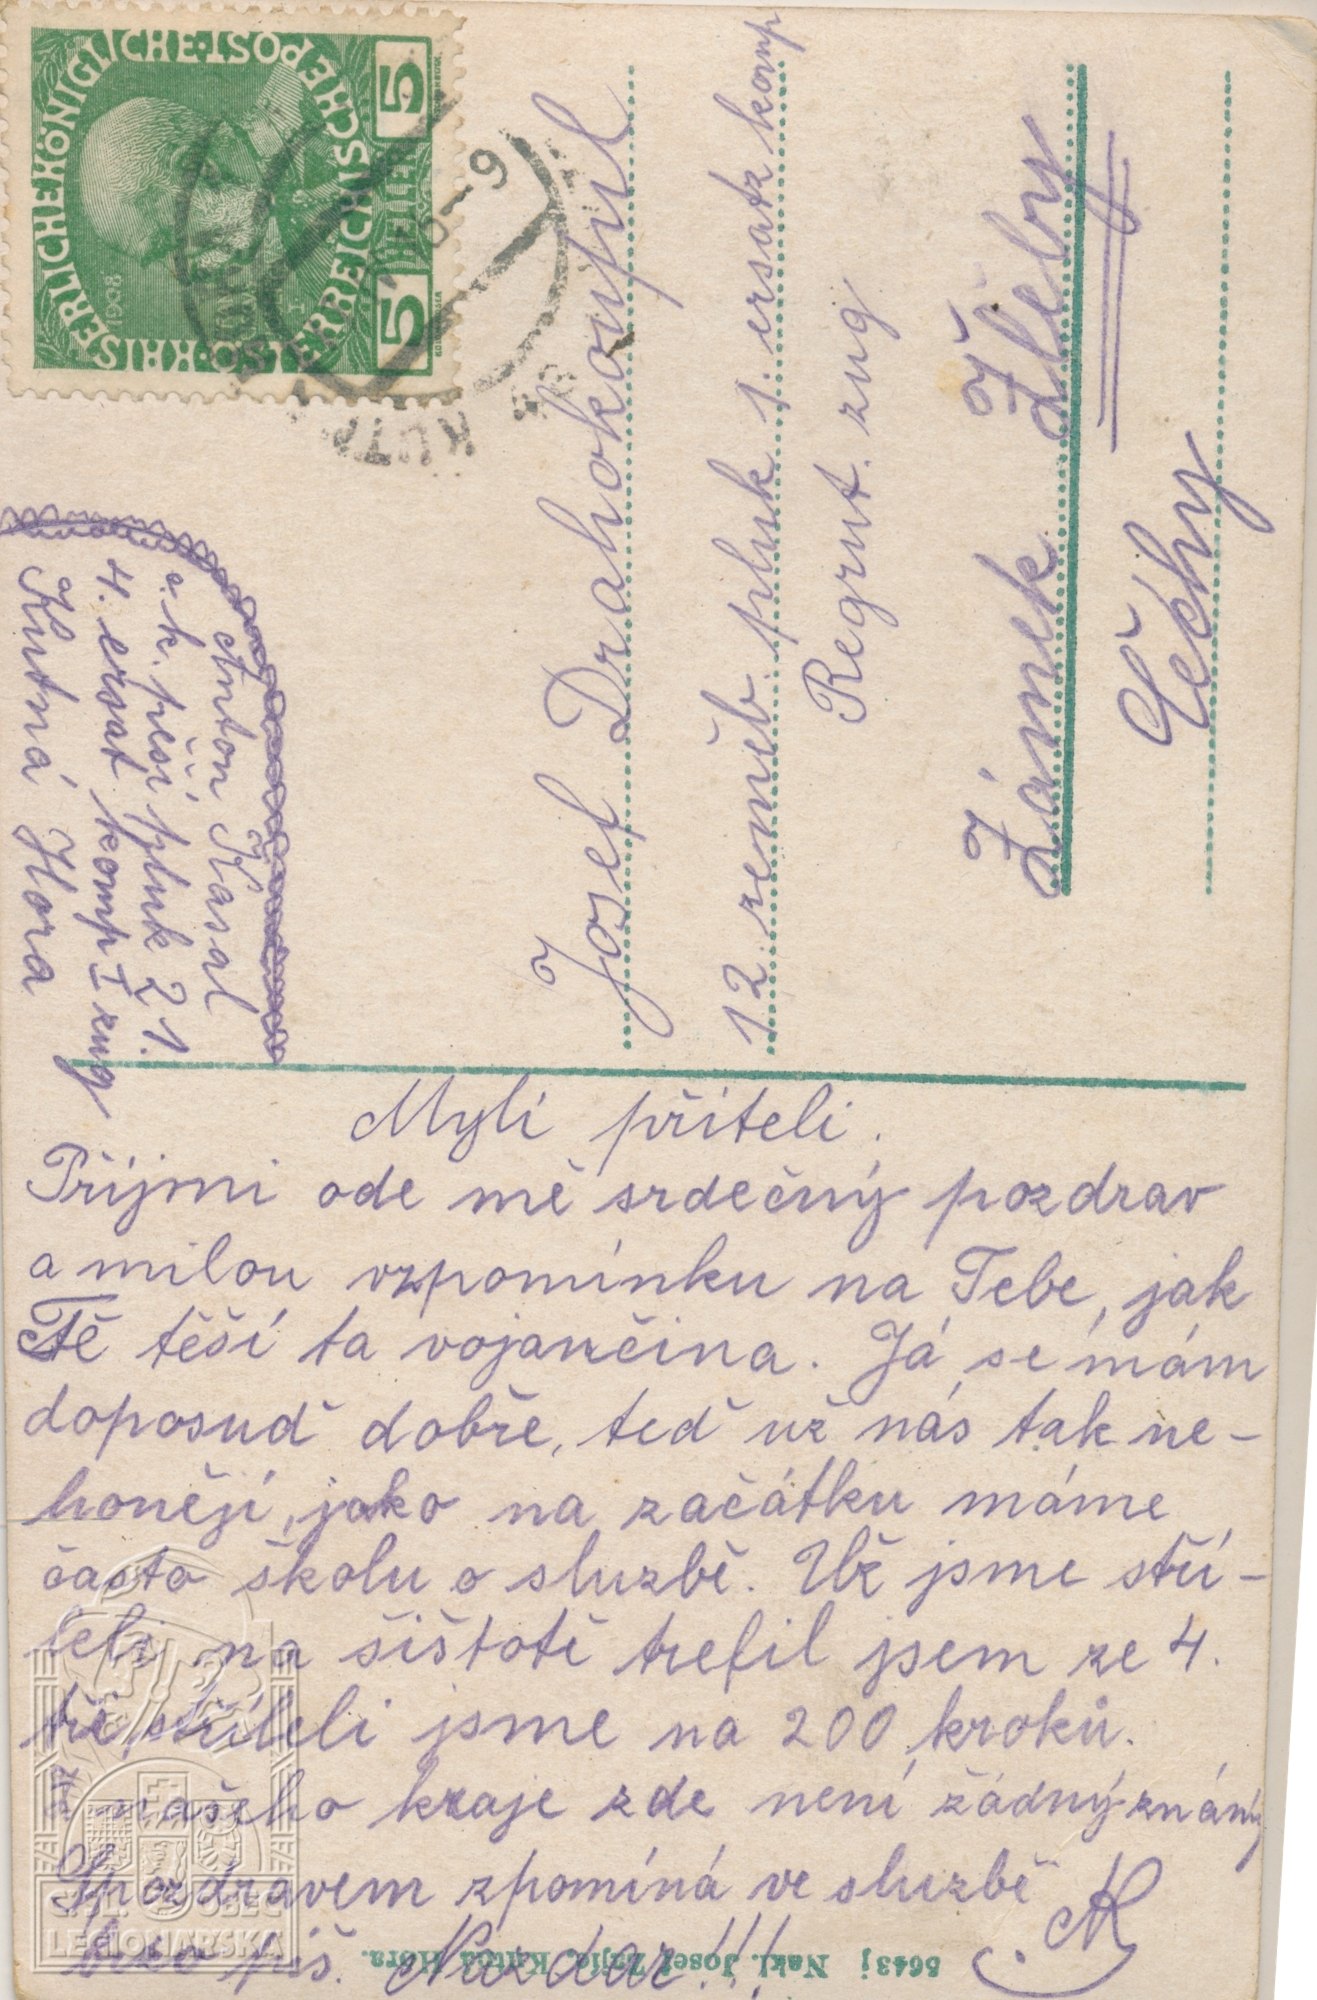 KAISERLICHE KÖNIGLICHE ÖSTERREICHISCHE POST
5 HELLER 5
1908
KUT
Anton Kasal
c. k. pěší pluk 21.
4. ersat komp I zug
Kutná Hora
Josef Drahokoupil
12. zeměb. pluk 1. ersatz komp
Regrut. zug
Zámek Žleby
Čechy
Mylí příteli.
Příjmi ode mě srdečný pozdrav
a milou vzpomínku na Tebe, jak
Tě těší ta vojančina. Já se mám
doposuď dobře, teď už nás tak ne-
honějí, jako na začátku máme
často školu o sluzbě. Už jsme stří-
leli na šištotě trefil jsem ze 4.
tře, stříleli jsme na 200 kroků.
Z našeho kraje zde není žádný známý
S pozdravem zpomíná ve sluzbě
brzo piš. Nazdar!!!
AK
5643 j Nakl. Josef Zajíc, Kutná Hora.
ČSL. OBEC
LEGIONÁŘSKÁ